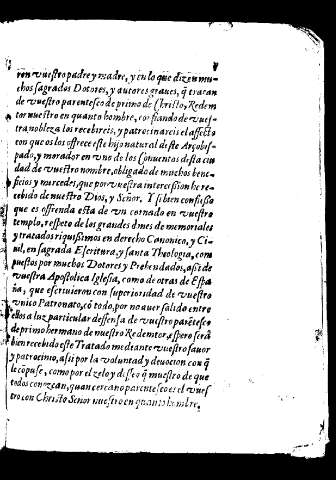 ron vuestro padre y madre, y en lo que dizen mu-
chos sagrados Dotores, y autores graues, q̃ tratan
de vuestro parentesco de primo de Christo, Redem
tor nuestro en quanto hombre, confiando de vues-
tra nobleza los recebireis, y patrocinareis el affecto
con que os los offrece este hijo natural deste Arçobis-
pado, y morador en vno de los Conuentos desta ciu
dad de vuestro nombre, obligado de muchos bene-
ficios y mercedes, que por vuestra intercession he re-
cebido de nuestro Dios, y Señor. Y si bien confiesso
que es offrenda esta de vn cornado en vuestro
templo, respeto de los grandes dones de memoriales
y tratados riquissimos en derecho Canonico, y Ci-
uil, en sagrada Escritura, y santa Theologia, com
puestos por muchos Dotores y Prebendados, assi de
vuestra Apostolica Iglesia, como de otras de Espa-
ña, que escriuieron con superioridad de vuestro
vnico Patronato, cõ todo, por no auer salido entre
ellos a luz particular deffensa de vuestro parẽtesco
de primo hermano de nuestro Redemtor, espero serà
bien recebido este Tratado mediante vuestro fauor
y patrocinio, assi por la voluntad y deuocion con q̃
le cõpuse, como por el zelo y deseo q̃ muestro de que
todos conozcan, quan cercano parentesco es el vues
tro con Christo Señor nuestro en quanto hombre,